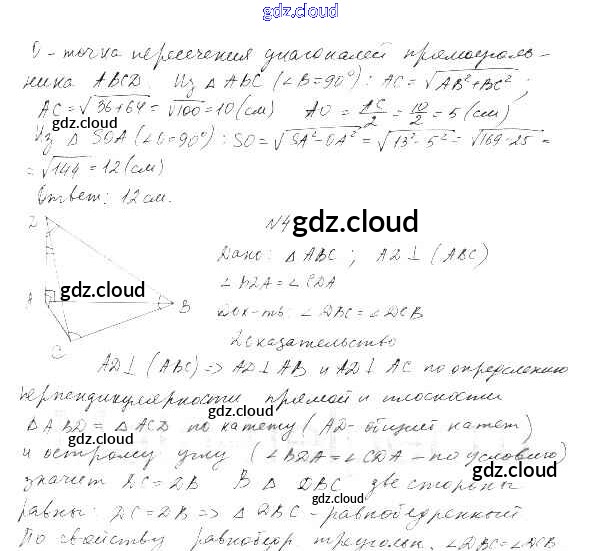 gdz.cloud
О - точка пересечения диагоналей прямоуголь-
ника ABCD Из △ ABC (∠B=90°): AC=√AB²+BC² ;
AC=√36+64 = √100=10 (см) AO = AC/2 = 10/2 = 5 (см)
gdz.cloud
Из △ SOA (∠O=90°): SO=√SA²-OA² = √13²-5² = √169-25 =
gdz.cloud
= √144 = 12 (см)
Ответ: 12 см.
№4 gdz.cloud
Дано: △ ABC ; AD⊥(ABC)
∠BDA=∠CDA
gdz.cloud
Док-ть: ∠DBC=∠DCB
Доказательство
AD⊥(ABC) => AD⊥AB и AD⊥AC по определению
gdz.cloud
перпендикулярности прямой и плоскости
△ABD = △ACD по катету (AD- общий катет)
gdz.cloud
и острому углу (∠BDA=∠CDA - по условию)
gdz.cloud
значит DC=DB В △ DBC две стороны
gdz.cloud
равны: DC=DB => △ DBC - равнобедренный
По свойству равнобедр. треугольн. ∠DBC=∠DCB
gdz.cloud
D
A
B
C